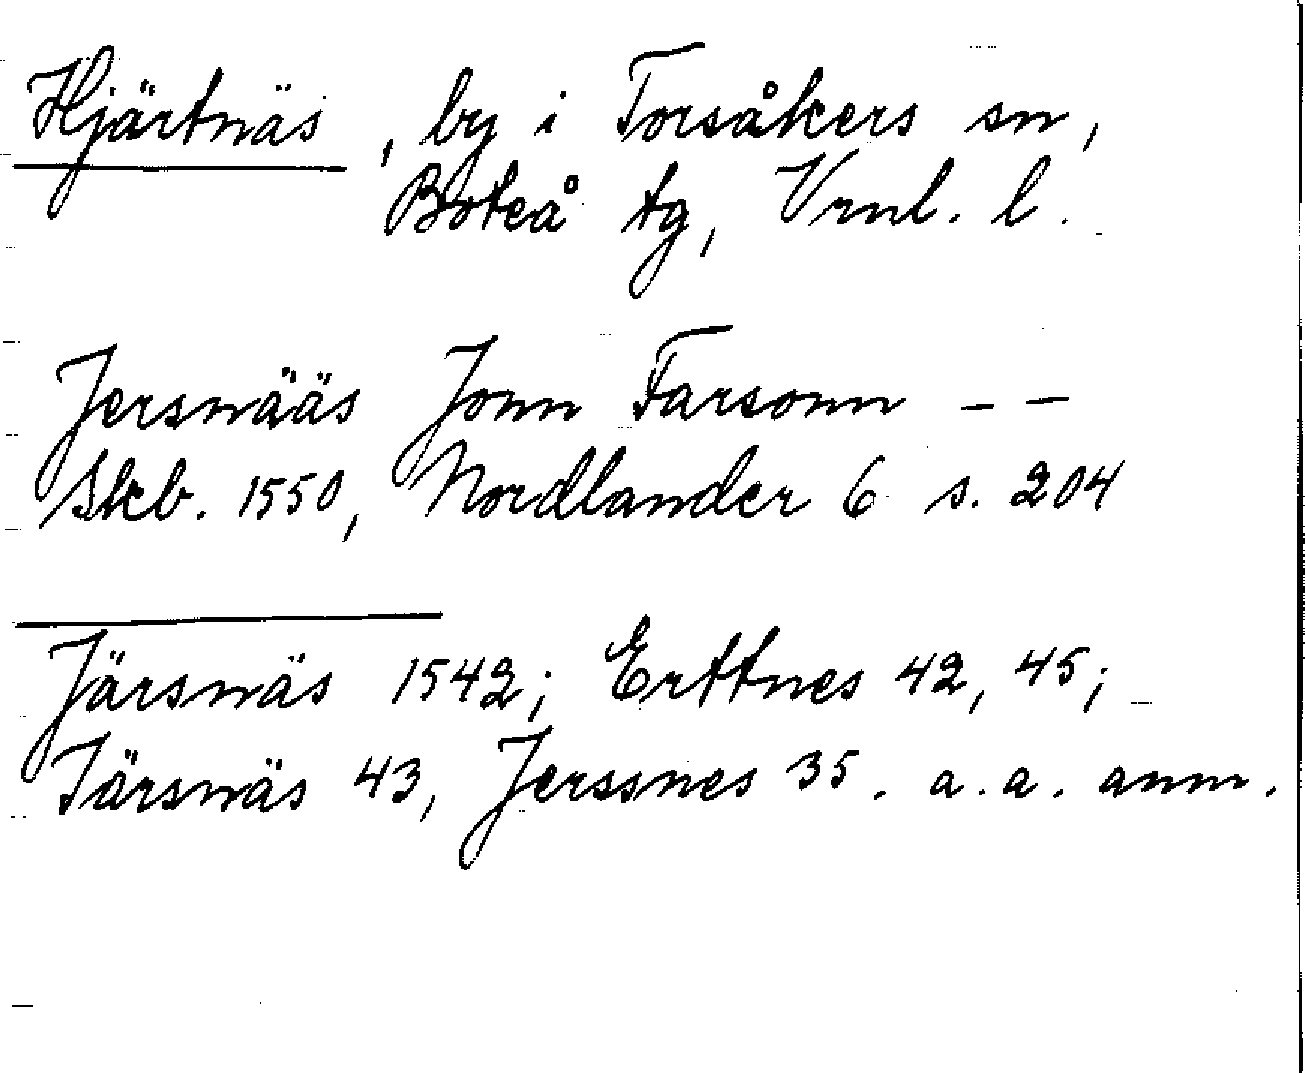 Hjärtnäs, by i Torsåkers sn,
Boteå tg, Vrnl. l.
Jersnääs Jonn Farsonn – –
Skb. 1550, Nordlander 6 s. 204
Järsnäs 1542; Erttnes 42, 45;
Järsnäs 43, Jerssnes 35. a.a. anm.